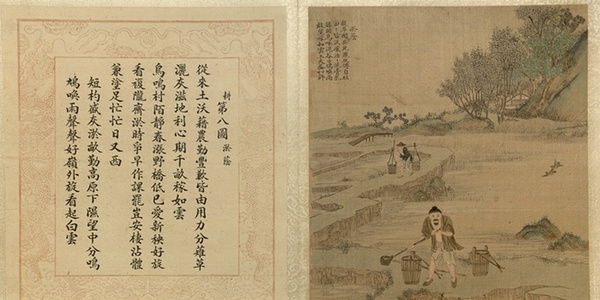 耕 第八圖 淤蔭
從來土沃藉農勤豐歉皆由用力分薙草
灑灰滋地利心期千畝稼如雲
鳥鳴村陌靜春漲野橋低已愛新秧好旋
看複隴齊淤時爭早作課罷豈安棲沾體
兼塗足忙忙日又西
短杓盛灰淤畝勤高原下濕望中分鳴
鳩喚雨聲聲好嶺外旋看起白雲